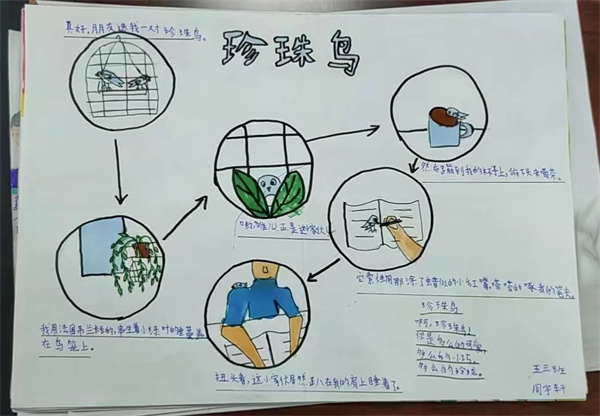 珍珠鸟
真好,朋友送我一对珍珠鸟。
我用法国吊兰长长的,串生着小绿叶的垂蔓盖
在鸟笼上。
哟,雏儿,正是这家伙!
然后蹦到我的杯子上,俯下头来喝茶。
它索性用那涂了蜡似的小红嘴,嗒嗒的啄我的笔尖。
扭头看,这小家伙居然趴在我的肩上睡着了。
珍珠鸟
啊,珍珠鸟!
你是多么的可爱,
多么的小巧,
多么的珍珑。
五三班
周宇轩